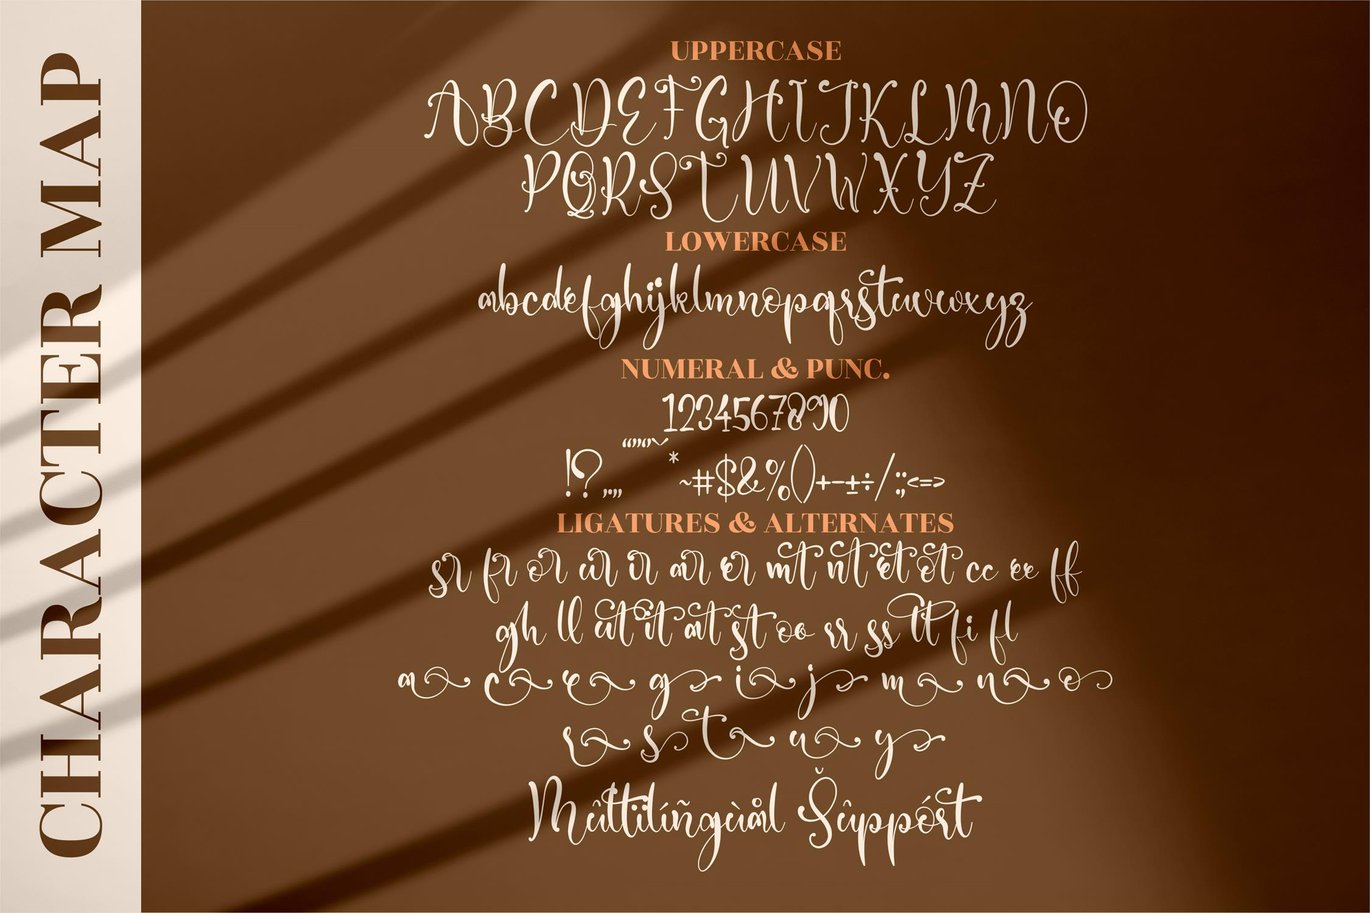 CHARACTER MAP
UPPERCASE
ABCDEFGHIJKLMNO
PQRSTUVWXYZ
LOWERCASE
abcdefghijklmnopqrstuvwxyz
NUMERAL & PUNC.
1234567890
“”‘’ˇ
!?.,„ * ~#$&%()+-–±÷/:;<=>
LIGATURES & ALTERNATES
sr fr or ur ir ar er mt nt et ot cc ee ff
gh ll ut it at st oo rr ss tt fi fl
a c e g i j m n o
r s t u y
Mûltïlíñgùàål Šûppórt